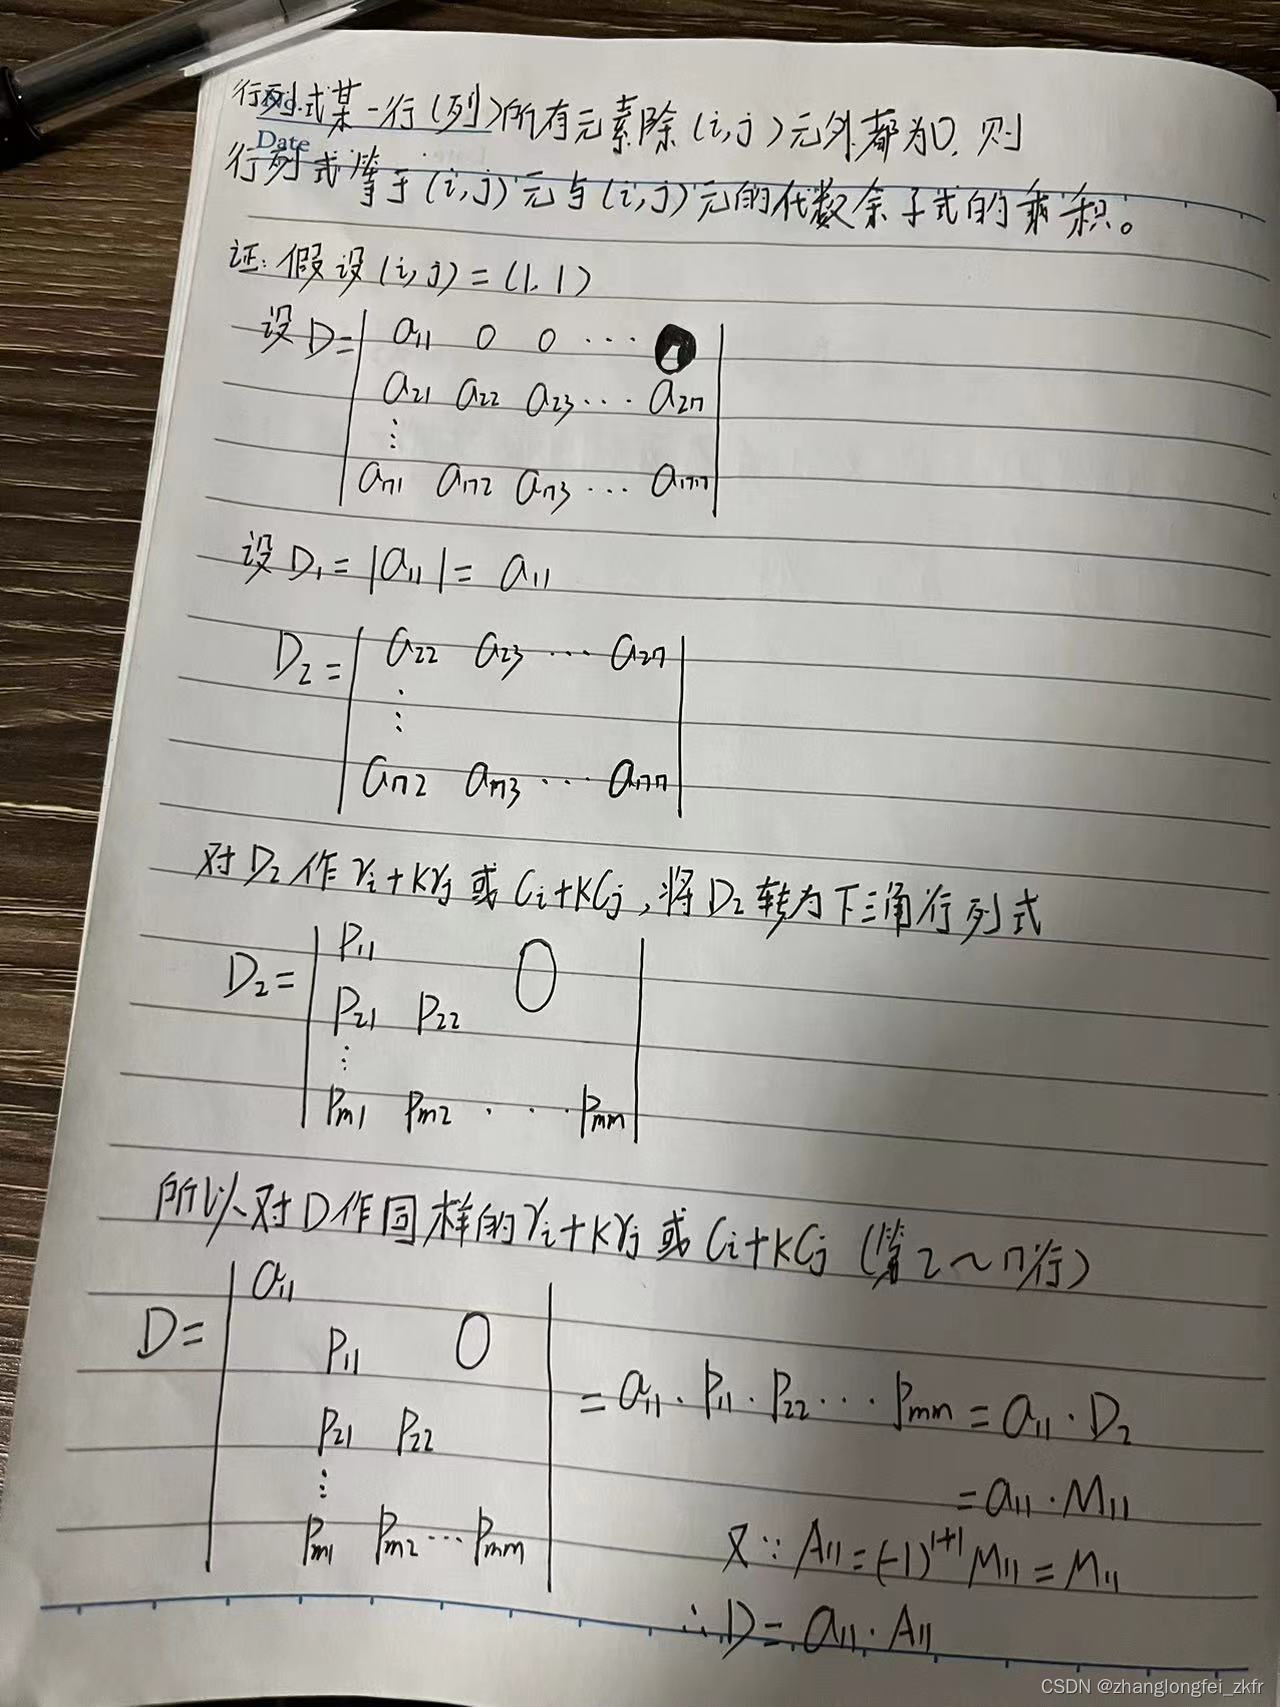 行列式某一行(列)所有元素除(i,j)元外都为0,则
Date
行列式等于(i,j)元与(i,j)元的代数余子式的乘积。
证:假设(i,j)=(1,1)
设D=| a11 0 0 ··· 0 |
a21 a22 a23 ··· a2n
⋮
an1 an2 an3 ··· ann
设D1=|a11|=a11
D2=| a22 a23 ··· a2n |
⋮
an2 an3 ··· ann
对D2作ri+krj或Ci+KCj,将D2转为下三角行列式
D2=| P11 0 |
P21 P22
⋮
Pm1 Pm2 ··· Pmm
所以对D作同样的ri+krj或Ci+KCj(第2~n行)
D=| a11
P11 0
P21 P22
⋮
Pm1 Pm2 ··· Pmm |
=a11·P11·P22···Pmm=a11·D2
=a11·M11
又∵A11=(-1)^{1+1}M11=M11
∴D=a11·A11
CSDN @zhanglongfei_zkfr